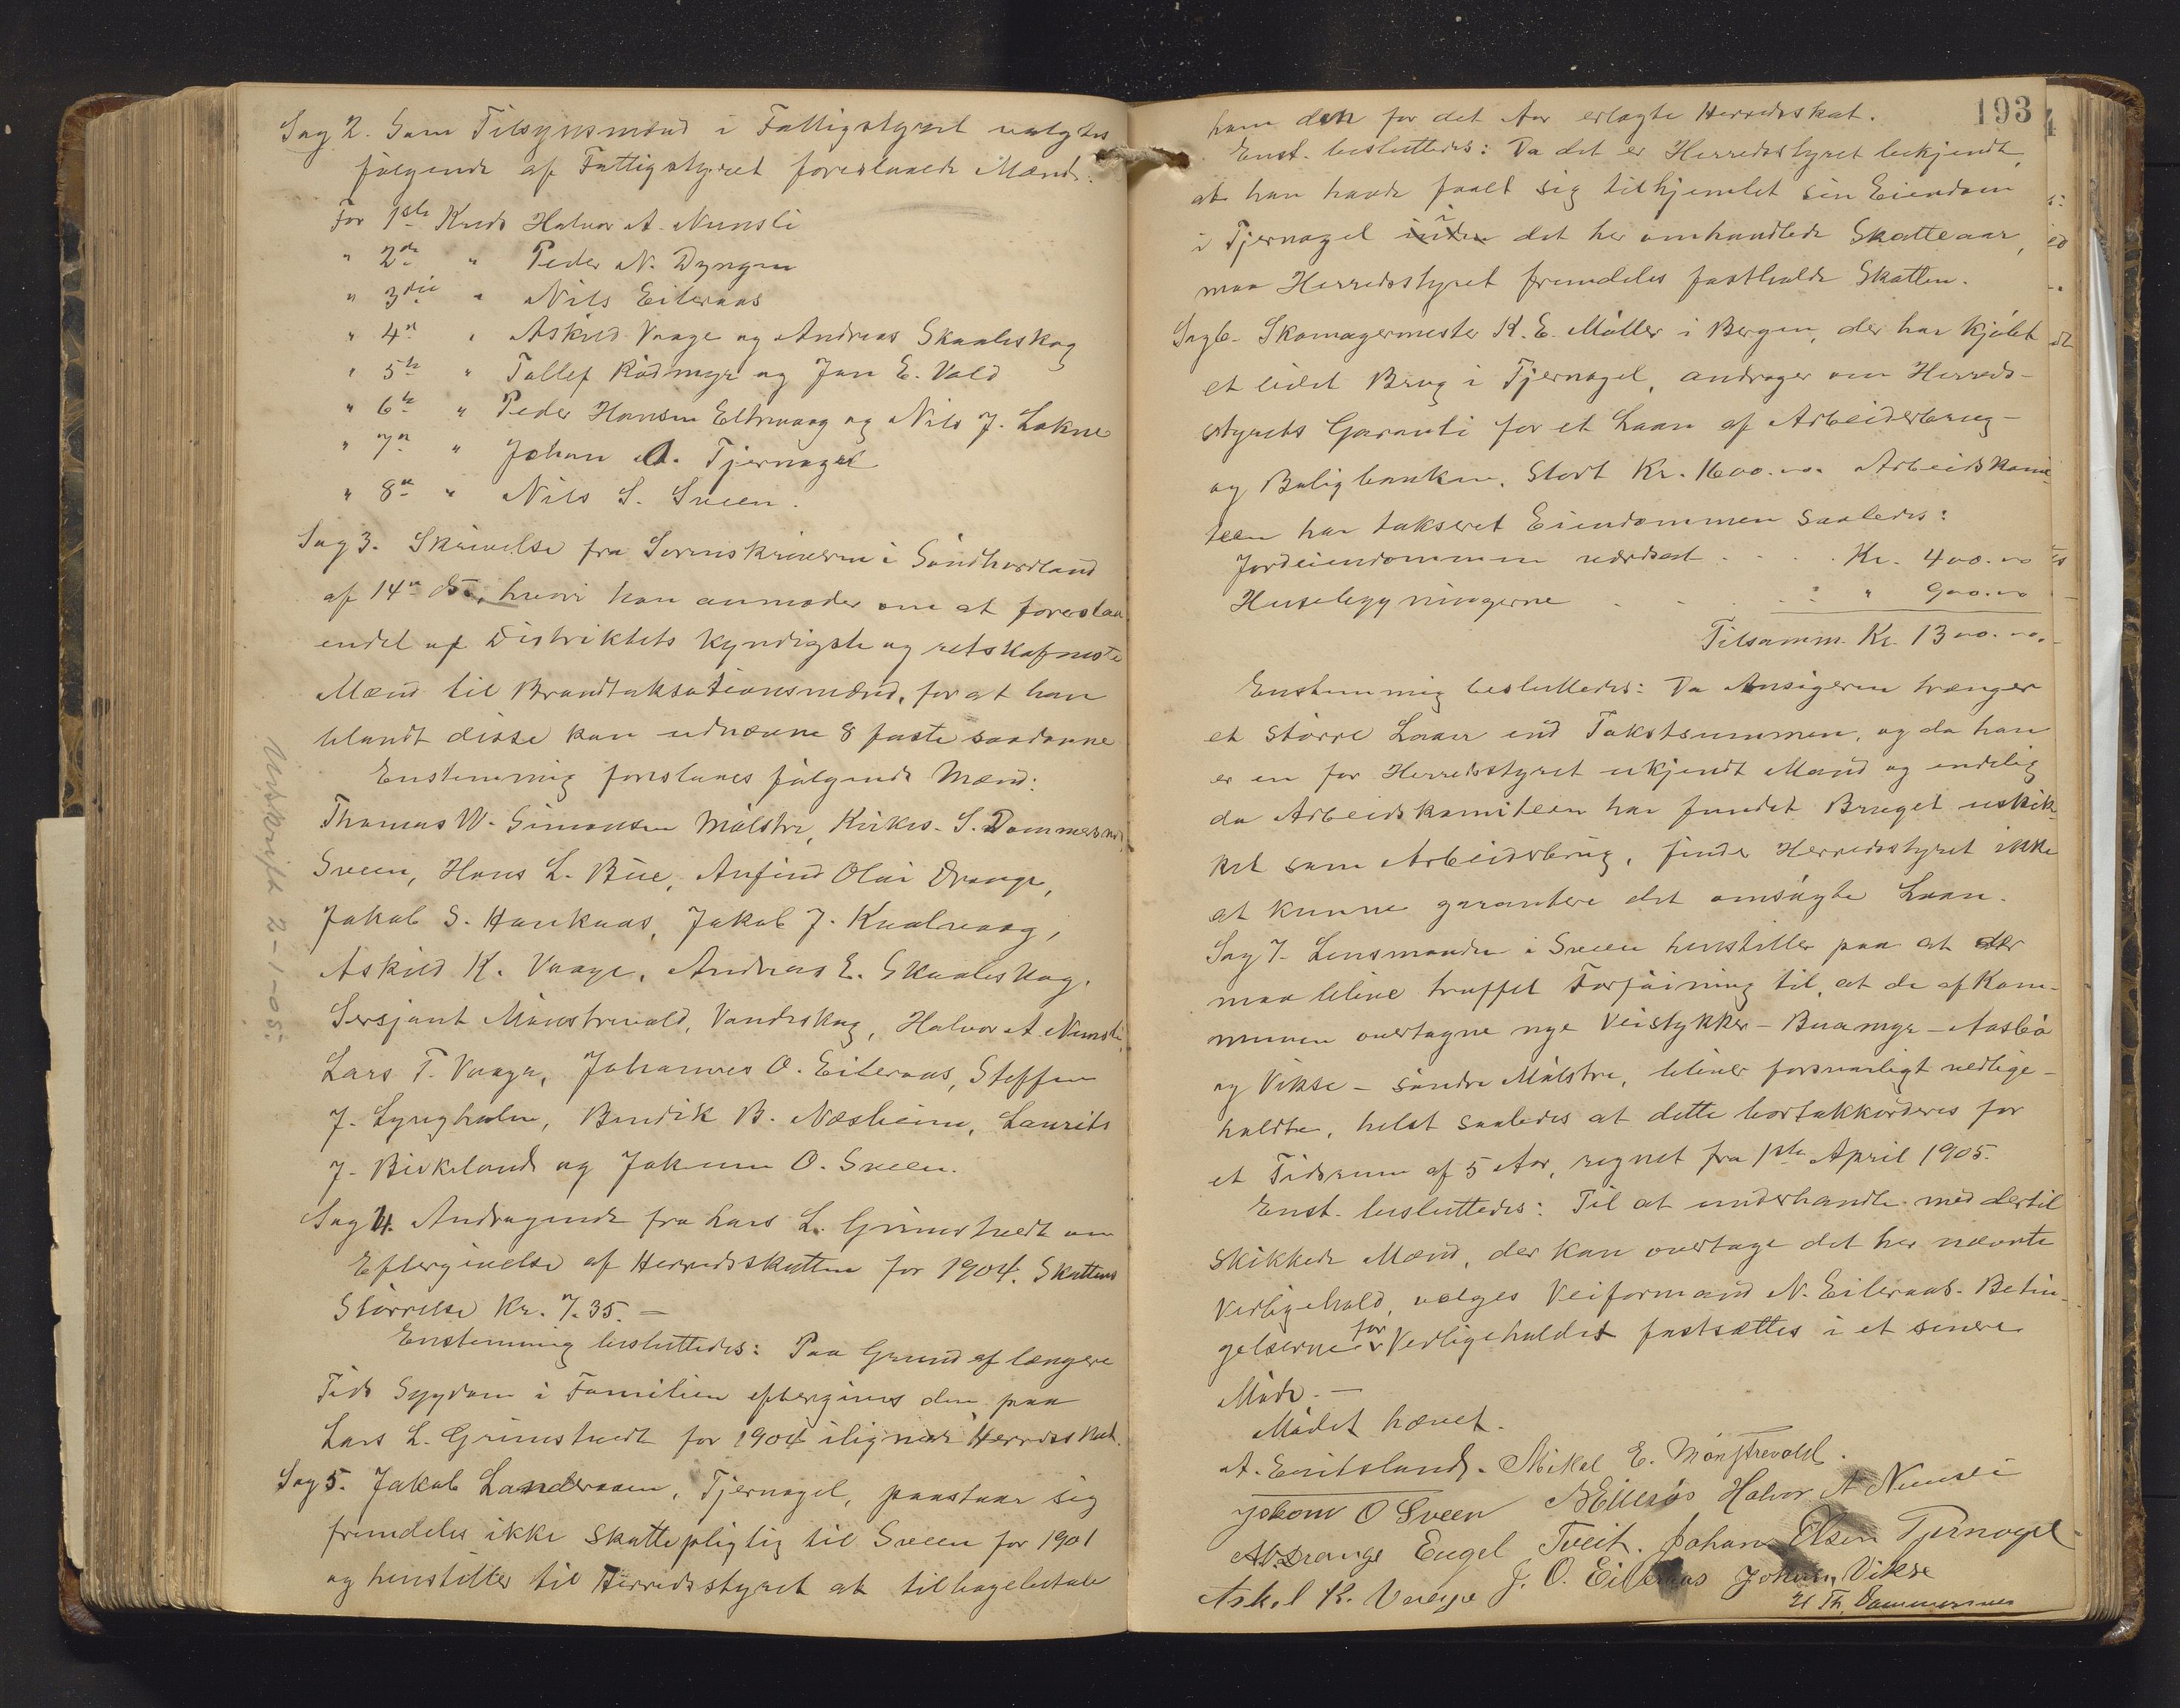 Sag 2. Som Tilsynsmænd i Fattigstyret valgtes
følgende af Fattigstyret foreslaaede Mænd:
For 1ste Kreds Halvor A. Nunsli
" 2den " Peder N. Dyngen
" 3die " Nils Eileraas
" 4de " Askild Vaage og Andreas Skaaleskog
" 5te " Tollef Rødmyr og Jan E. Vold
" 6te " Peder Hansen Eltravaag og Nils J. Lokne
" 7de " Johan O. Tjernagel
" 8de " Nils S. Sveen.
Sag 3. Skrivelse fra Sorenskriveren i Søndhordland
af 14de ds., hvori han anmoder om at foreslaa
endel af Distriktets kyndigste og retskafneste
Mænd til Brandtaksationsmænd, for at han
blandt disse kan udnævne 8 faste saadanne
Enstemmig foreslaaes følgende Mænd:
Thomas W. Simonsen Mølstre, Kirkes. S. Dommersnes,
Sveen, Hans L. Bue, Anfind Olai Drange,
Jakob S. Haukaas, Jakob J. Kvalevaag,
Askild K. Vaage, Andreas E. Skaaleskog,
Sersjant Mønstrevold, Vandeskog, Halvor A. Nunsli,
Lars T. Vaage, Johannes O. Eileraas, Steffen
J. Lyngholm, Bendik B. Næsheim, Laurits
J. Birkeland og Johan O. Sveen.
Sag 4. Andragende fra Lars L. Grimstvedt om
Eftergivelse af Herredsskatten for 1904. Skattens
Størrelse Kr. 7.35. —
Enstemmig besluttedes: Paa Grund af længere
Tids Sygdom i Familien eftergives den paa
Lars L. Grimstvedt for 1904 ilignede Herredsskat.
Sag 5. Jakob Landeraaen, Tjernagel, paastaar sig
fremdeles ikke skattepligtig til Sveen for 1901
og henstiller til Herredsstyret at tilbagebetale
Udskrift 2-1-05.
193
ham den for det Aar erlagte Herredsskat.
Enst. besluttedes: Da det er Herredsstyret bekjendt,
at han havde faaet sig tilhjemlet sin Eiendom
i Tjernagel inden i det her omhandlede Skatteaar,
maa Herredsstyret fremdeles fastholde Skatten.
Sag 6. Skomagermester K. E. Møller i Bergen, der har kjøbt
et lidet Brug i Tjernagel, andrager om Herreds-
styrets Garanti for et Laan af Arbeiderbrug-
og Boligbanken, Stort Kr. 1600.00. Arbeidskomi-
teen har takseret Eiendommen saaledes:
Jordeiendommen værdsat . . . . Kr. 400.00
Husebygningerne . . . . " 900.00
Tilsamm. Kr. 1300.00.
Enstemmig besluttedes: Da Ansøgeren trænger
et større Laan end Takstsummen, og da han
er en for Herredsstyret ukjendt Mand og endelig
da Arbeidskomiteen har fundet Bruget uskik-
ket som Arbeidsbrug, finder Herredsstyret ikke
at kunne garantere det omsøgte Laan.
Sag 7. Lensmanden i Sveen henstiller paa at der
maa blive truffet Forføining til, at de af Kom-
munen overtagne nye Veistykker – Buamyr – Aasbø
og Vikse – søndre Mølstre, bliver forsvarligt vedlige-
holdte, helst saaledes at dette bortakkorderes for
et Tidsrum af 5 Aar, regnet fra 1ste April 1905.
Enst. besluttedes: Til at underhandle med dertil
skikkede Mænd, der kan overtage det her nævnte
Vedligehold, vælges Veiformand N. Eileraas. Betin-
gelserne for Vedligeholdet fastsættes i et senere
Møde. —
Mødet hævet.
A. Emitsland. Mikal E. Mønstrevold.
Johan O Sveen N Eileraas Halvor A Nunsli
A. O. Drange Engel Tveit. Johan Olsen Tjernagel
Askel K. Vaage J. O. Eileraas Johan Vikse
H Th. Dommersnes